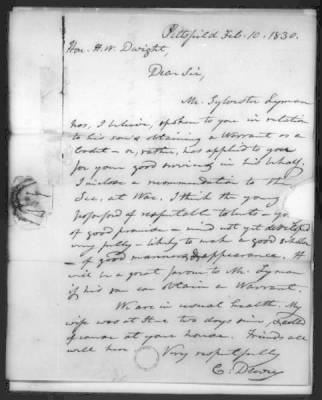 Pittsfield Feb. 10. 1830.
Hon. H. W. Dwight,
Dear Sir,
Mr. Sylvester Lyman
has, I believe, spoken to you in relation
to his son's obtaining a Warrant as a
Cadet – or, rather, has applied to you
for your good services in his behalf.
I inclose a recommendation to the
Sec. at War. I think the young
of respectable talents –
of good promise – mind not yet developed
very fully – likely to make a good scholar
of good manners & appearance. It
will be a great favour to Mr. Lyman
if his son can obtain a Warrant.
We are in usual health. My
wife was at two days since,
of course at your house. Friends all
well here Very respectfully
C. Dewey